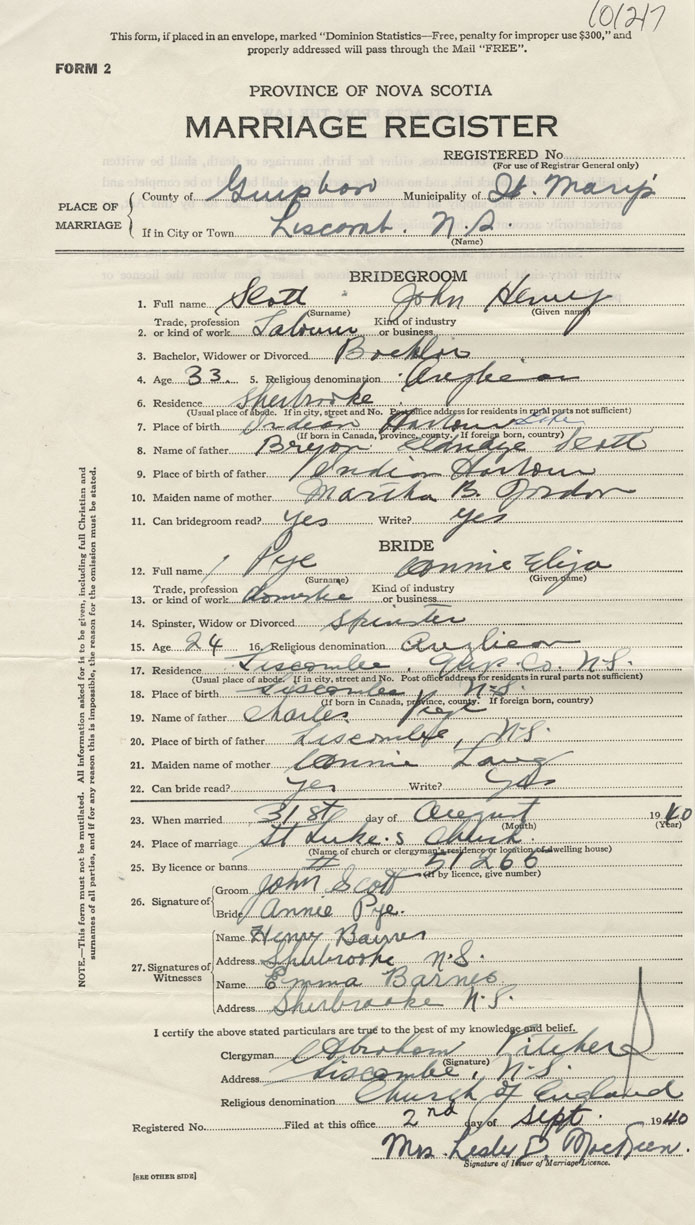 10127
This form, if placed in an envelope, marked “Dominion Statistics—Free, penalty for improper use $300,” and
properly addressed will pass through the Mail “FREE”.
FORM 2
PROVINCE OF NOVA SCOTIA
MARRIAGE REGISTER
REGISTERED No.
(For use of Registrar General only)
PLACE OF MARRIAGE
County of Guysboro Municipality of St. Mary's
If in City or Town Liscomb. N.S.
(Name)
BRIDEGROOM
1. Full name Scott John Henry
(Surname) (Given name)
2. Trade, profession or kind of work Labourer Kind of industry or business
3. Bachelor, Widower or Divorced Bachelor
4. Age 33. 5. Religious denomination Anglican
6. Residence Sherbrooke
(Usual place of abode. If in city, street and No. Post office address for residents in rural parts not sufficient)
7. Place of birth Indian Harbour Lake
(If born in Canada, province, county. If foreign born, country)
8. Name of father Scott
9. Place of father Indian Harbour
10. Maiden name of mother Martha B. Gordon
11. Can bridegroom read? Yes Write? Yes
BRIDE
12. Full name Pye Annie Eliza
(Surname) (Given name)
13. Trade, profession or kind of work domestic Kind of industry or business
14. Spinster, Widow or Divorced Spinster
15. Age 24 16. Religious denomination Anglican
17. Residence Liscombe, Guys. Co. N.S.
(Usual place of abode. If in city, street and No. Post office address for residents in rural parts not sufficient)
18. Place of birth Liscombe N.S.
(If born in Canada, province, county. If foreign born, country)
19. Name of father Charles Pye
20. Place of birth of father Liscombe, N.S.
21. Maiden name of mother Annie
22. Can bride read? Yes Write? Yes
23. When married 31st day of August 1940
(Month) (Year)
24. Place of marriage St Luke's Church
(Name of church or clergyman's residence or location of dwelling house)
25. By licence or banns 51266
(If by licence, give number)
26. Signature of
Groom John Scott
Bride Annie Pye.
27. Signatures of Witnesses
Name Henry Barnes
Address Sherbrooke N.S.
Name Emma Barnes
Address Sherbrooke N.S.
I certify the above stated particulars are true to the best of my knowledge and belief.
Clergyman Abraham Pitcher
(Signature)
Address Liscombe, N.S.
Religious denomination Church of England
Registered No. Filed at this office 2nd day of Sept. 1940
Mrs. Leslie D. MacKeen.
Signature of Issuer of Marriage Licence.
[SEE OTHER SIDE]
NOTE.—This form must not be mutilated. All information asked for is to be given, including full Christian and
surnames of all parties, and if for any reason this is impossible, the reason for the omission must be stated.